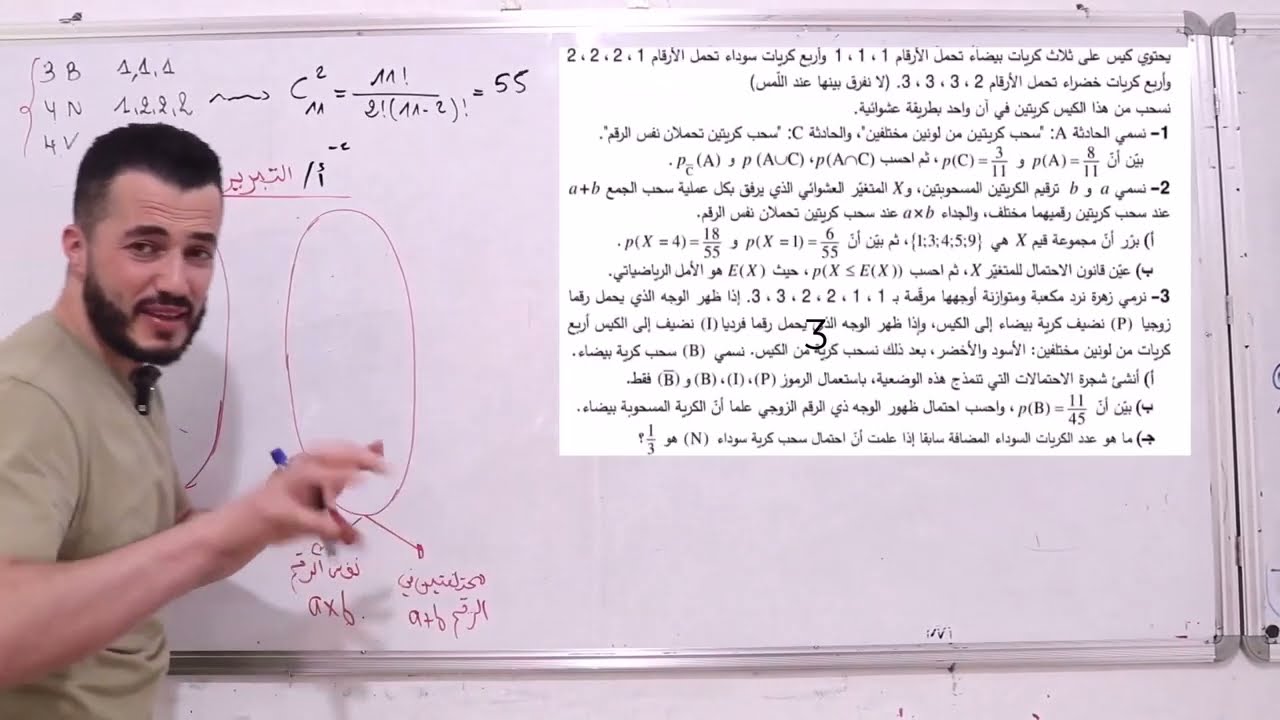 3 B 1,1,1
4 N 1,2,2,2
4 V
C²₁₁ = 11! / 2!(11-2)! = 55
2-
أ/ التبرير
نفس الرقم
a×b
مختلفتين في
الرقم a+b
يحتوي كيس على ثلاث كريات بيضاء تحمل الأرقام 1 ، 1 ، 1 وأربع كريات سوداء تحمل الأرقام 1 ، 2 ، 2 ، 2
وأربع كريات خضراء تحمل الأرقام 2 ، 3 ، 3 ، 3. (لا نفرق بينها عند اللّمس)
نسحب من هذا الكيس كريتين في آن واحد بطريقة عشوائية.
1– نسمي الحادثة A: "سحب كريتين من لونين مختلفين"، والحادثة C: "سحب كريتين تحملان نفس الرقم".
بيّن أنّ p(A) = 8/11 و p(C) = 3/11 ، ثم احسب p(A∩C)، p(A∪C) و p_C̅(A) .
2– نسمي a و b ترقيم الكريتين المسحوبتين، و X المتغيّر العشوائي الذي يرفق بكل عملية سحب الجمع a+b
عند سحب كريتين رقميهما مختلف، والجداء a×b عند سحب كريتين تحملان نفس الرقم.
أ) برّر أنّ مجموعة قيم X هي {1;3;4;5;9}، ثم بيّن أنّ p(X = 1) = 6/55 و p(X = 4) = 18/55 .
ب) عيّن قانون الاحتمال للمتغيّر X، ثم احسب p(X ≤ E(X)) ، حيث E(X) هو الأمل الرياضياتي.
3– نرمي زهرة نرد مكعبة ومتوازنة أوجهها مرقّمة بـ 1 ، 1 ، 2 ، 2 ، 3 ، 3. إذا ظهر الوجه الذي يحمل رقما
زوجيا (P) نضيف كرية بيضاء إلى الكيس، وإذا ظهر الوجه الذي يحمل رقما فرديا (I) نضيف إلى الكيس أربع
3
كريات من لونين مختلفين: الأسود والأخضر، بعد ذلك نسحب كرية من الكيس. نسمي (B) سحب كرية بيضاء.
أ) أنشئ شجرة الاحتمالات التي تنمذج هذه الوضعية، باستعمال الرموز (P)، (I)، (B) و (B̅) فقط.
ب) بيّن أنّ p(B) = 11/45 ، واحسب احتمال ظهور الوجه ذي الرقم الزوجي علما أنّ الكرية المسحوبة بيضاء.
جـ) ما هو عدد الكريات السوداء المضافة سابقا إذا علمت أنّ احتمال سحب كرية سوداء (N) هو 1/3 ؟